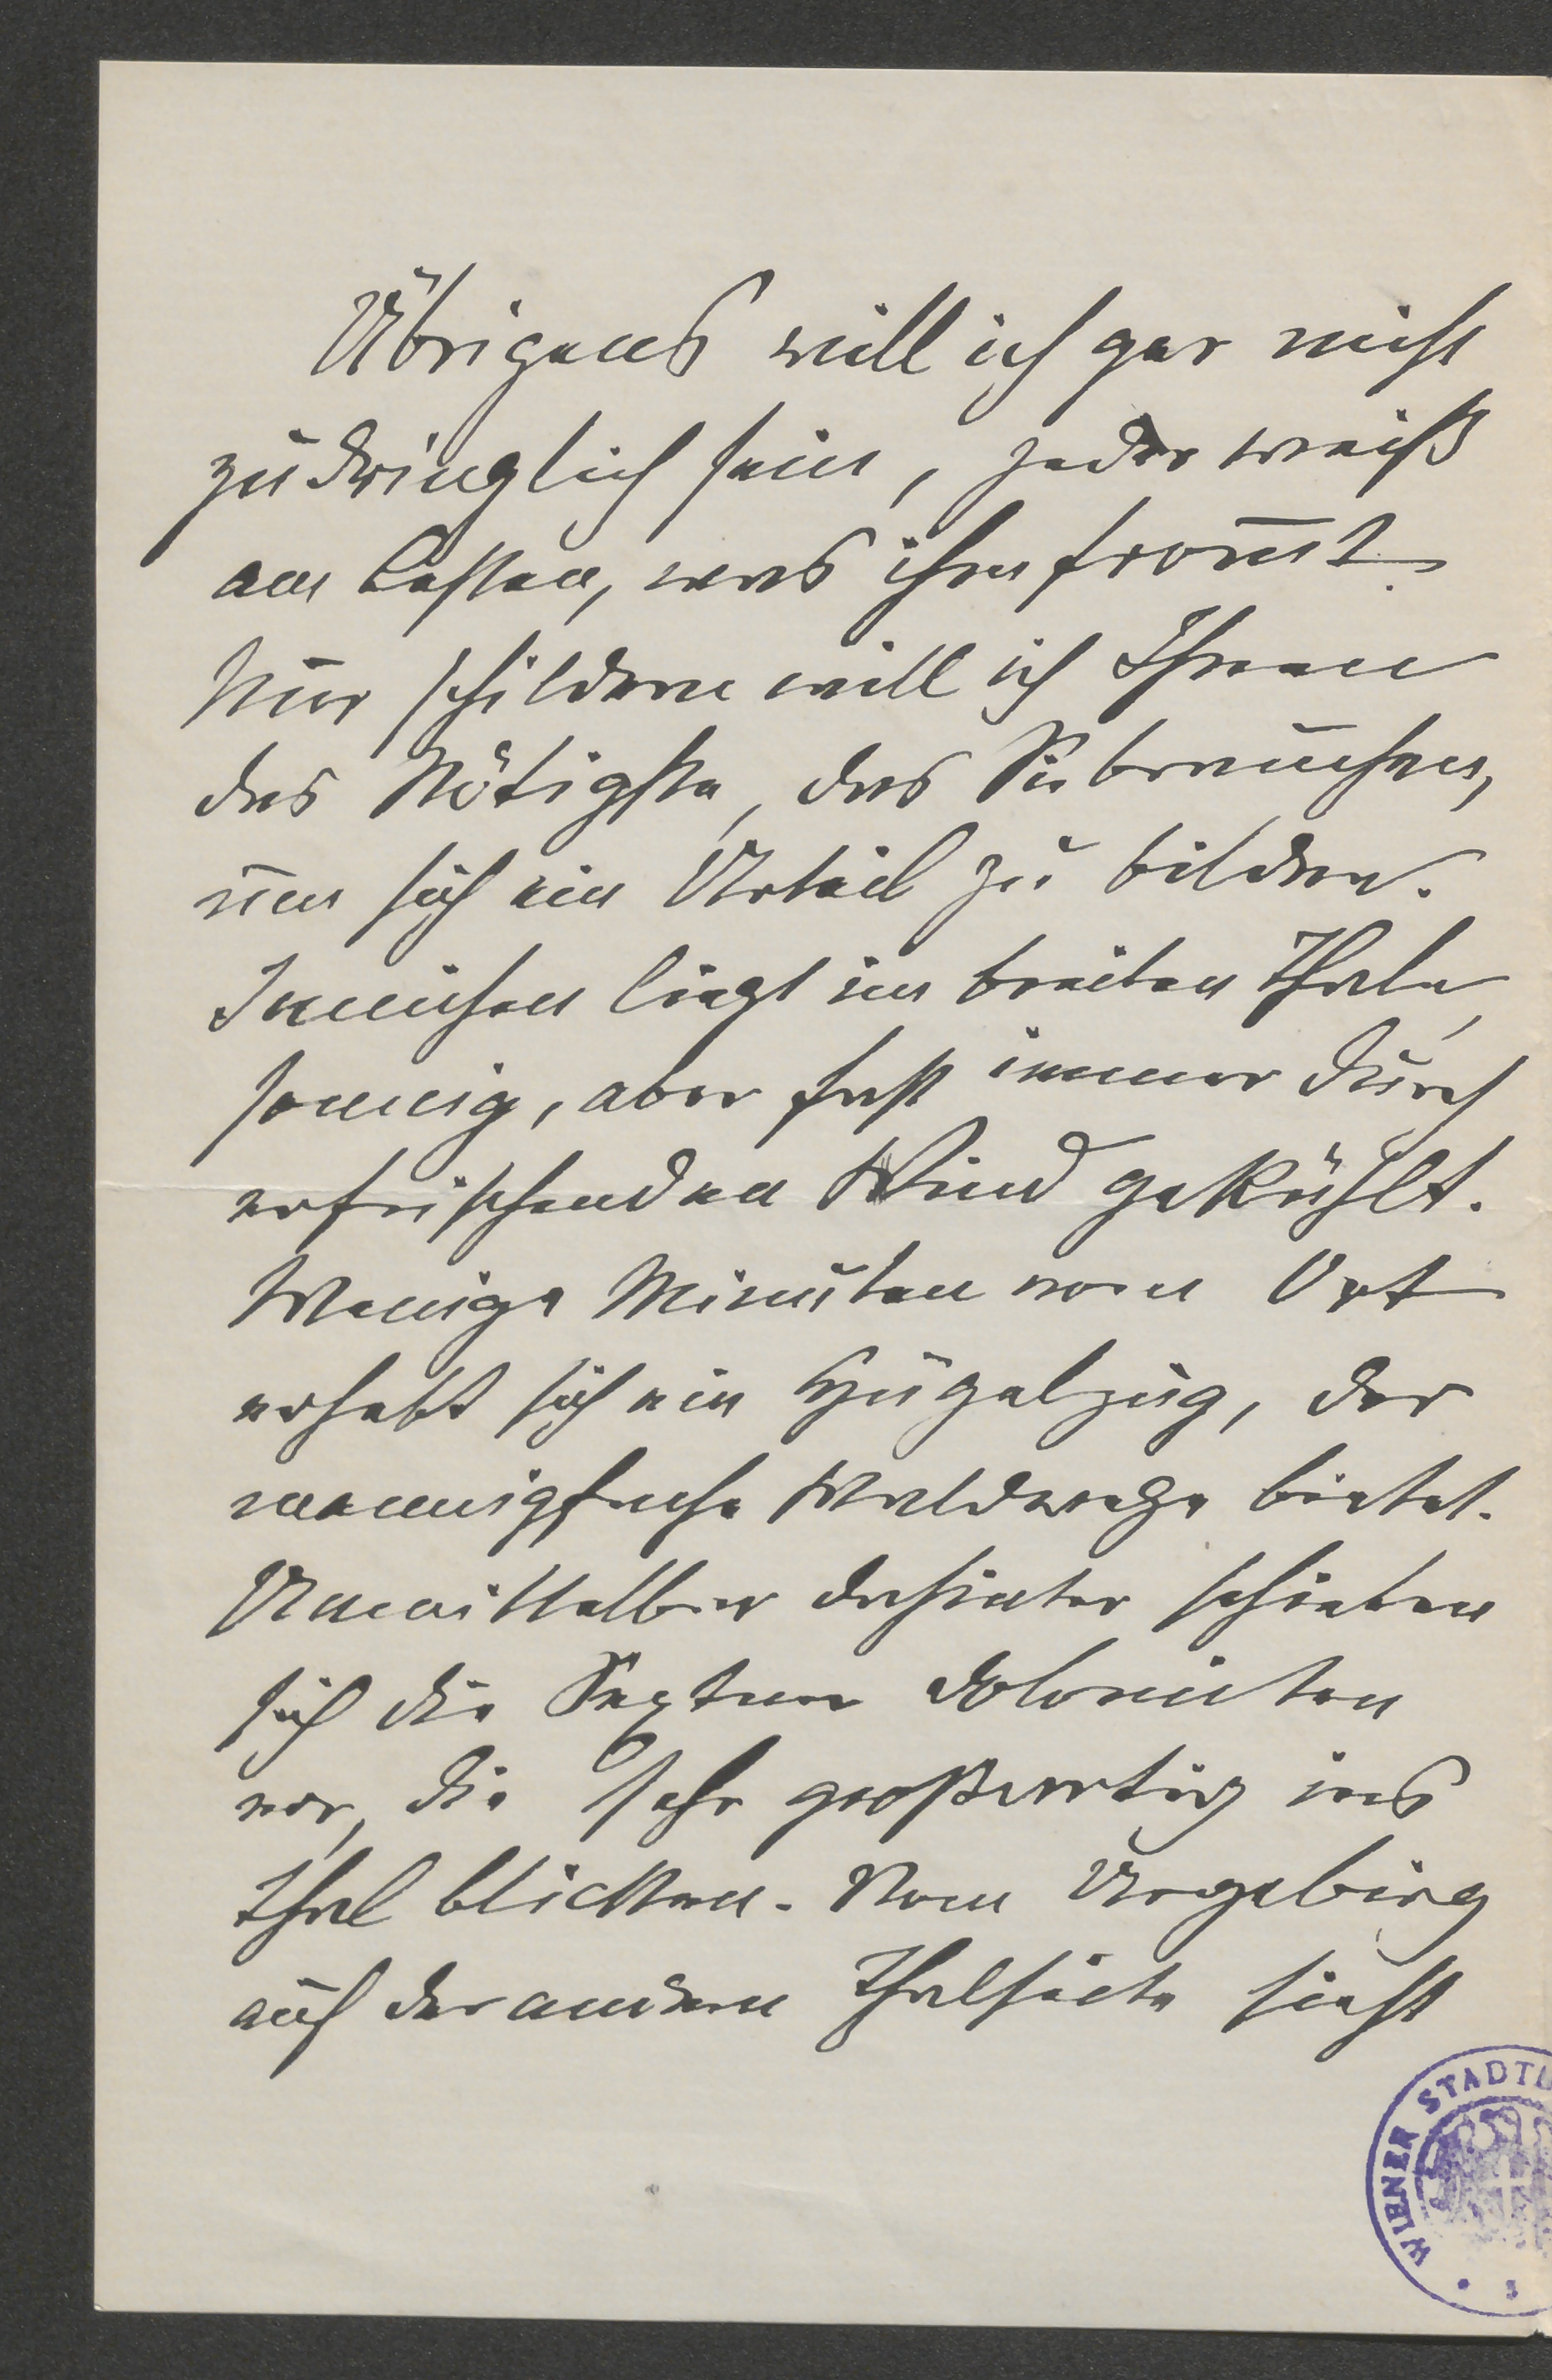 Übrigens will ich gar nicht
zudringlich sein, jeder weiß
am besten, was ihm from̅t.
Nur schildern will ich Ihnen
das Nötigste, das Sie brauchen,
um sich ein Urteil zu bilden.
Innichen liegt im breiten Thale,
sonnig, aber fast immer durch
erfrischenden Wind gekühlt.
Wenige Minuten vom Ort
erhebt sich ein Hügelzug, der
mannigfache Waldwege bietet.
Unmittelbar dahinter schieben
sich die Sextner Dolomiten
vor, die sehr großartig ins
Thal blicken. Vom Urgebirg
auf der andern Thalseite sieht
WIENER STADT